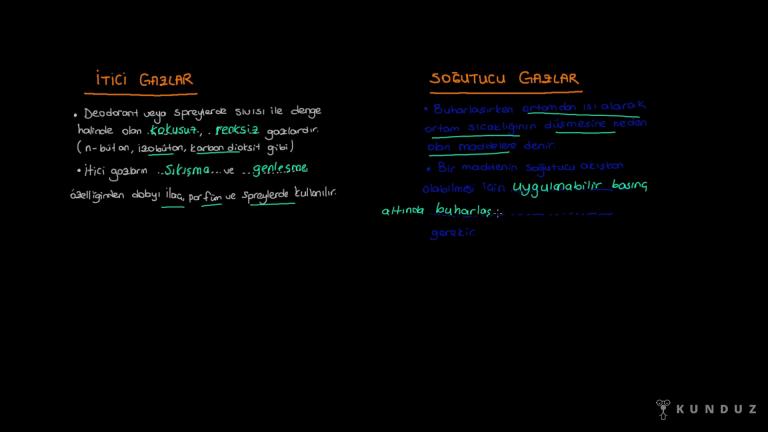 İTİCİ GAZLAR
• Deodorant veya spreylerde sıvısı ile denge
halinde olan kokusuz, renksiz gazlardır.
(n-bütan, izobütan, karbondioksit gibi)
• İtici gazların ..Sıkışma.. ve ..genleşme
özelliğinden dolayı ilaç, parfüm ve spreylerde kullanılır.
SOĞUTUCU GAZLAR
• Buharlaşırken ortamdan ısı alarak
ortam sıcaklığının düşmesine neden
olan maddelere denir.
• Bir maddenin soğutucu akışkan
olabilmesi için uygulanabilir basınç
altında buharlaş
gerekir.
KUNDUZ